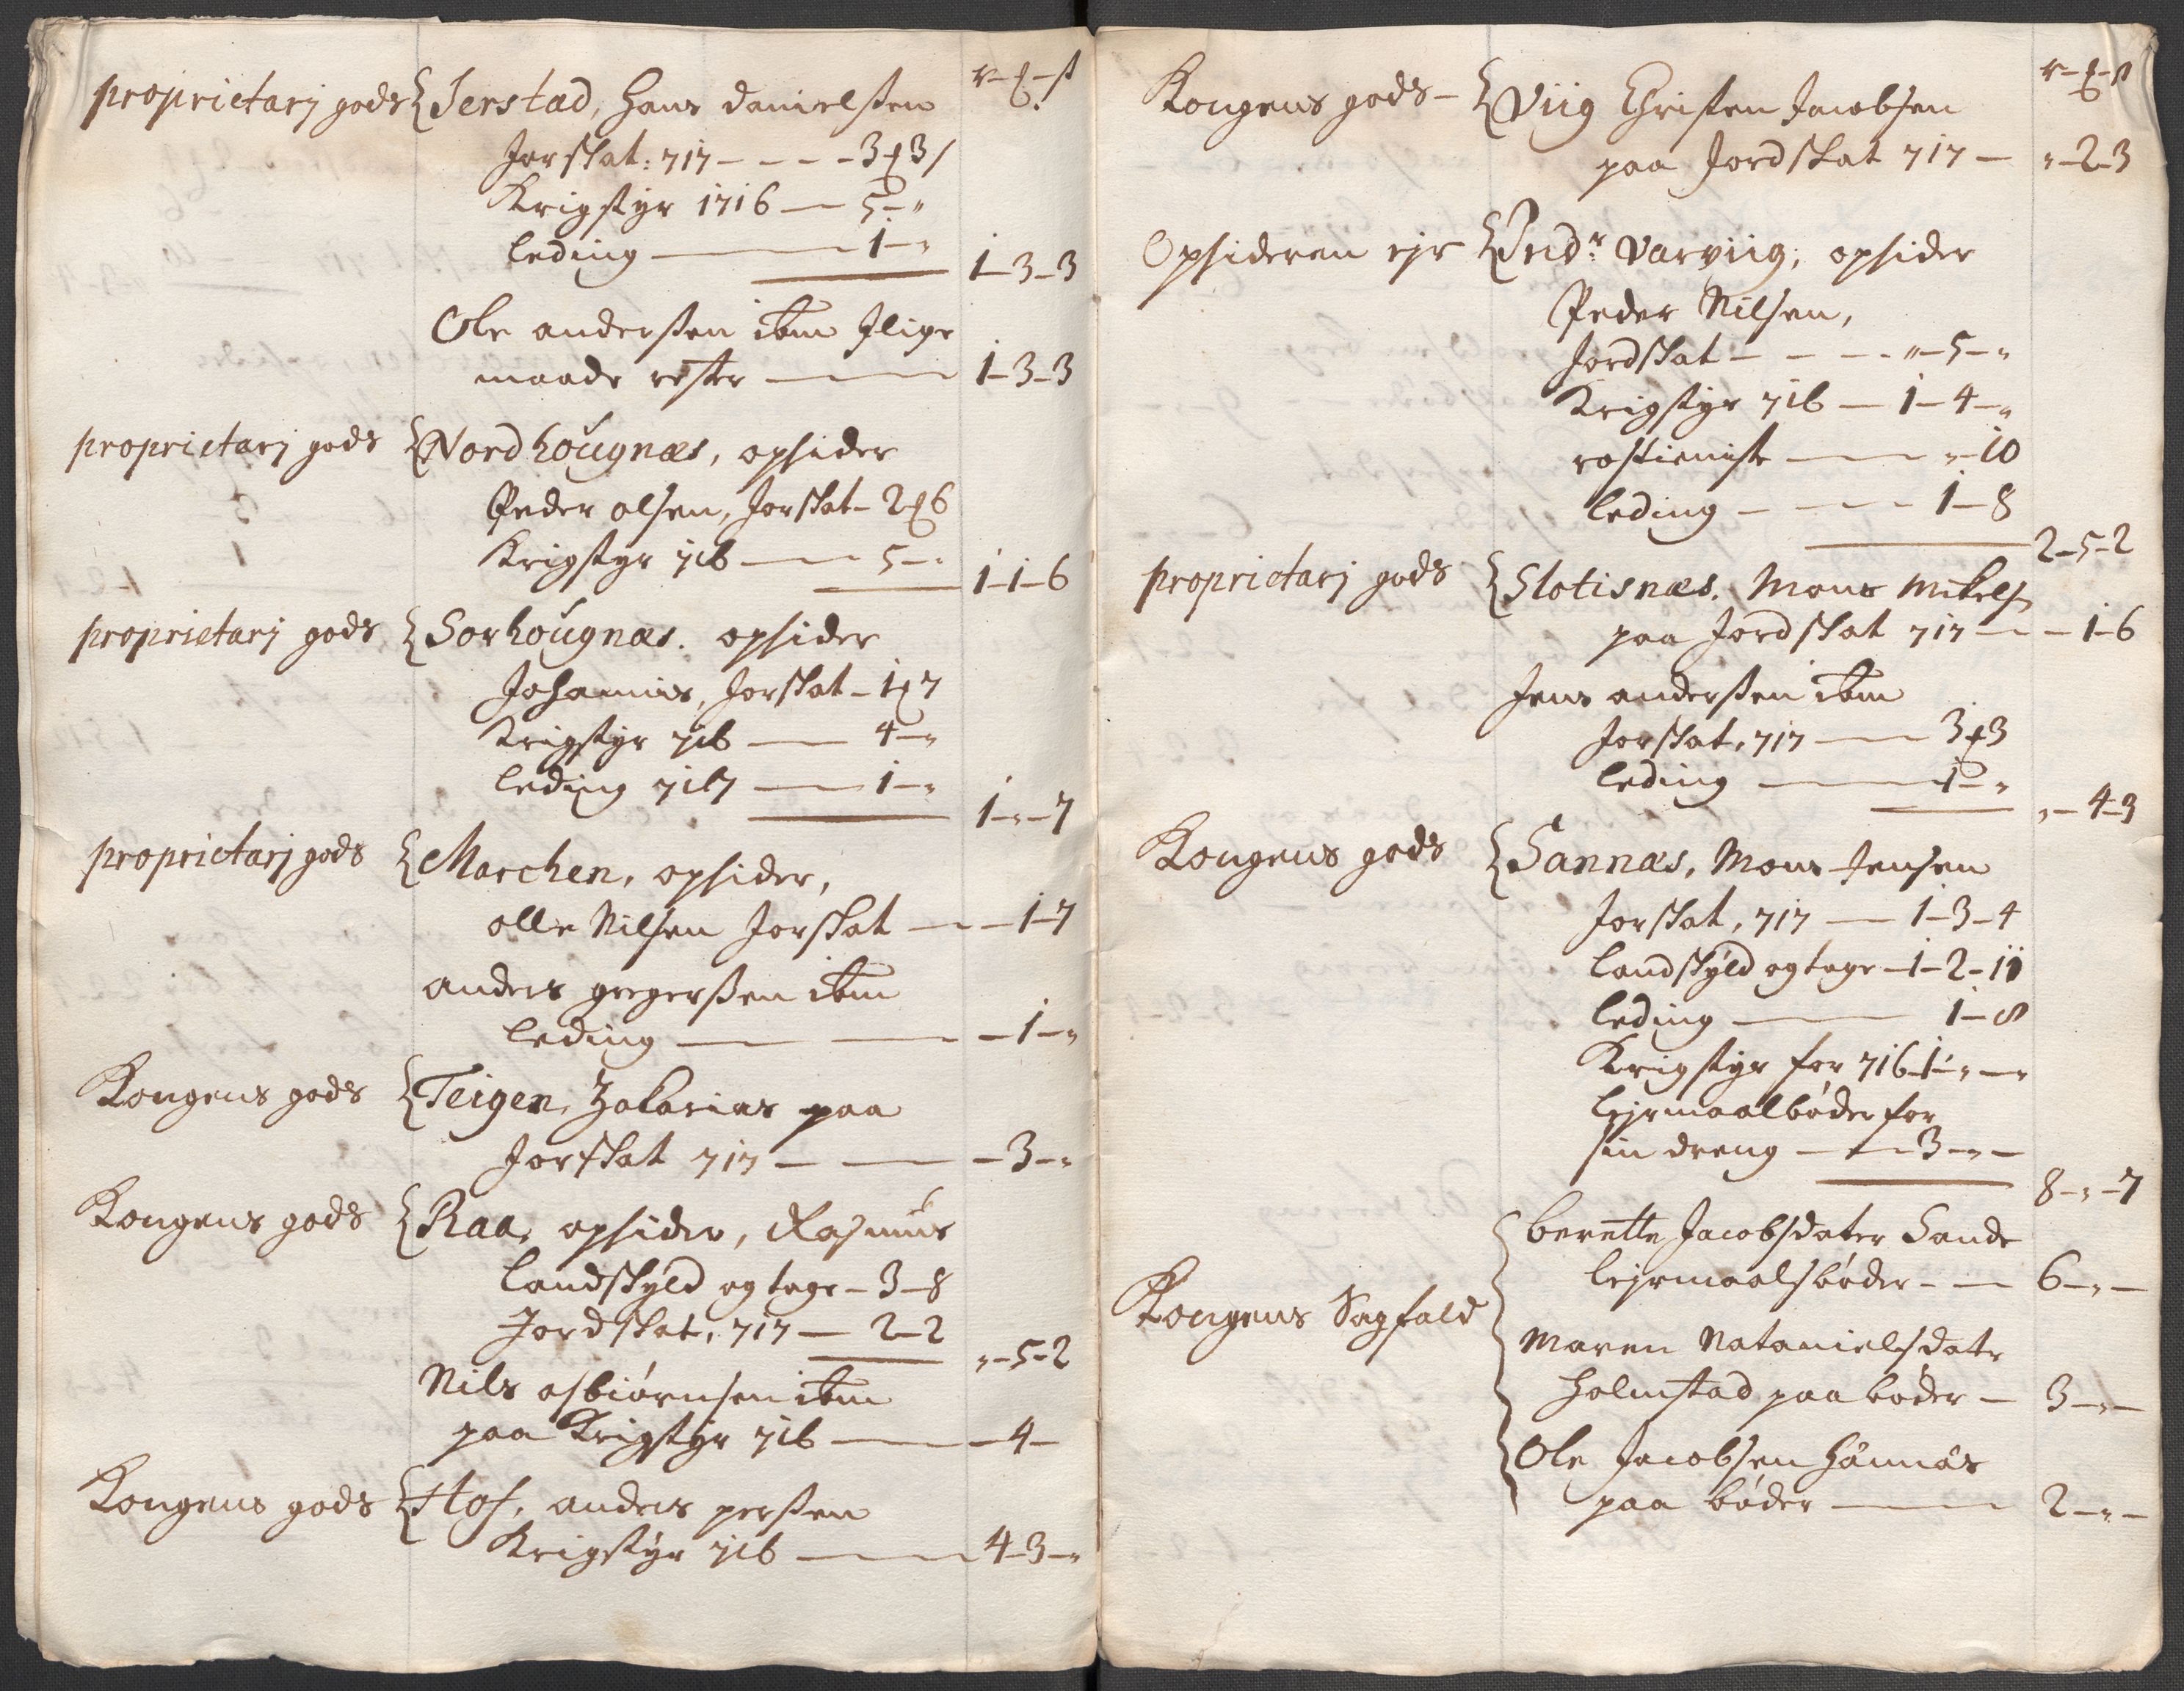 r – ₰ – ß
proprietarj gods { Jerstad, Hans Danielsen
Jorskat: 717 – – – – 3 ₰ 3 /
Krigstyr 1716 — 5 – "
leding — 1 – "
1 – 3 – 3
Ole andersen ibm Jlige
maade rester — 1 – 3 – 3
proprietarj gods { Nordhougnæs, opsider
Peder olsen, Jorskat – 2 ₰ 6
Krigstyr 716 — 5 – "
1 – 1 – 6
proprietarj gods { Sorhougnæs. opsider
Johannis, Jorskat – 1 ₰ 7
Krigstyr 716 — 4 – "
leding 7167 — 1 – "
1 – " – 7
proprietarj gods { Marchen, opsider,
olle Nilsen Jorskat — – 1 – 7
anders gregersen ibm
leding — — – 1 – "
Kongens gods { Teigen, Zakarias paa
Jorskat 717 – — – 3 – "
Kongens gods { Raa, opsider, Rasmus
landskyld og tage – 3 – 8
Jordskat, 717 — 2 – 2
" – 5 – 2
Nils asbiørnsen ibm
paa Krigstyr 716 — – 4 –
Kongens gods { Hof, anders persen
Krigstyr 716 — 4 – 3 – "
r – ₰ – ß
Kongens gods – { Viig Christen Jacobsen
paa Jordskat 717 — " – 2 – 3
Opsideren ejr { Indr: Varviig, opsider
Peder Nilsen,
Jordskat – – – – " – 5 – "
Krigstyr 716 — 1 – 4 – "
rostieniste — " – 10
leding – – – – 1 – 8
2 – 5 – 2
proprietarj gods { Slotisnæs. Mons Mikels
paa Jordskat 717 — – 1 – 6
Jens andersen ibm
Jorskat, 717 — 3 ₰ 3
leding — 1 – "
" – 4 – 3
Kongens gods { Sannæs, Mons Jensen
Jorskat, 717 — 1 – 3 – 4
landskyld og tage – 1 – 2 – 11
leding — 1 – 8
Krigstyr for 716 – 1 – " – "
lejrmaalbøder for
sin dreng — 3 – " –
8 – " – 7
berette Jacobsdater Sande
lejrmaalsbøder – — 6 – " –
Kongens Sagfald
Maren Natanielsdatr
Holmstad paa bøder — 3 – " –
Ole Jacobsen Hannæs
paa bøder — 2 – " –